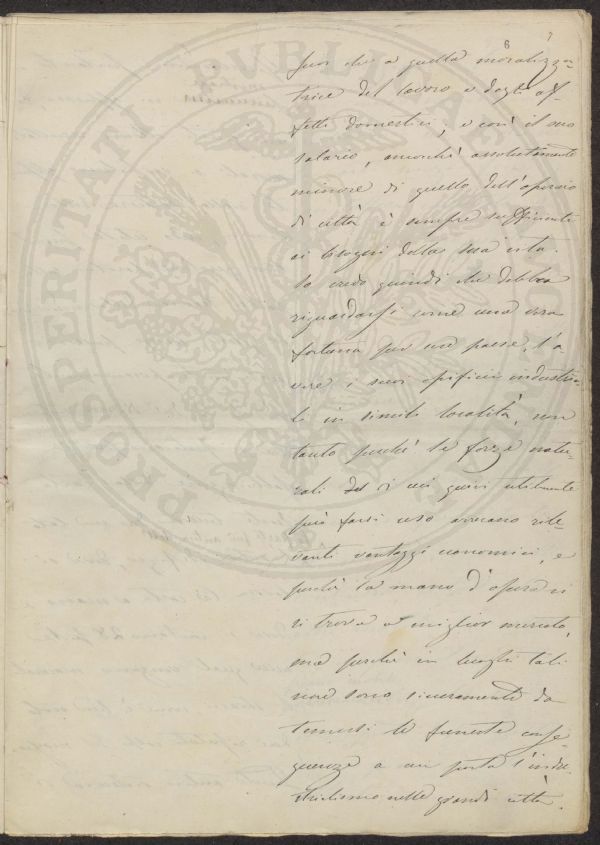 6 7
fuor che a quella moralizza-
trice del lavoro e degli af-
fetti domestici; e così il suo
salario, ancorchè assolutamente
minore di quello dell'operaio
di città è sempre sufficiente
ai bisogni della sua vita.
Io credo quindi che debba
riguardarsi come una vera
fortuna per un paese, l'a-
vere i suoi opifici industria-
li in simili località, non
tanto perchè le forze natu-
rali di cui quivi utilmente
può farsi uso arrecano rile-
vanti vantaggi economici, e
perchè la mano d'opera vi
si trova a miglior mercato,
ma perchè in luoghi tali
non sono sicuramente da
temersi le funeste conse-
guenze a cui porta l'indu-
strialismo nelle grandi città.
PROSPERITATI PVBLICAE